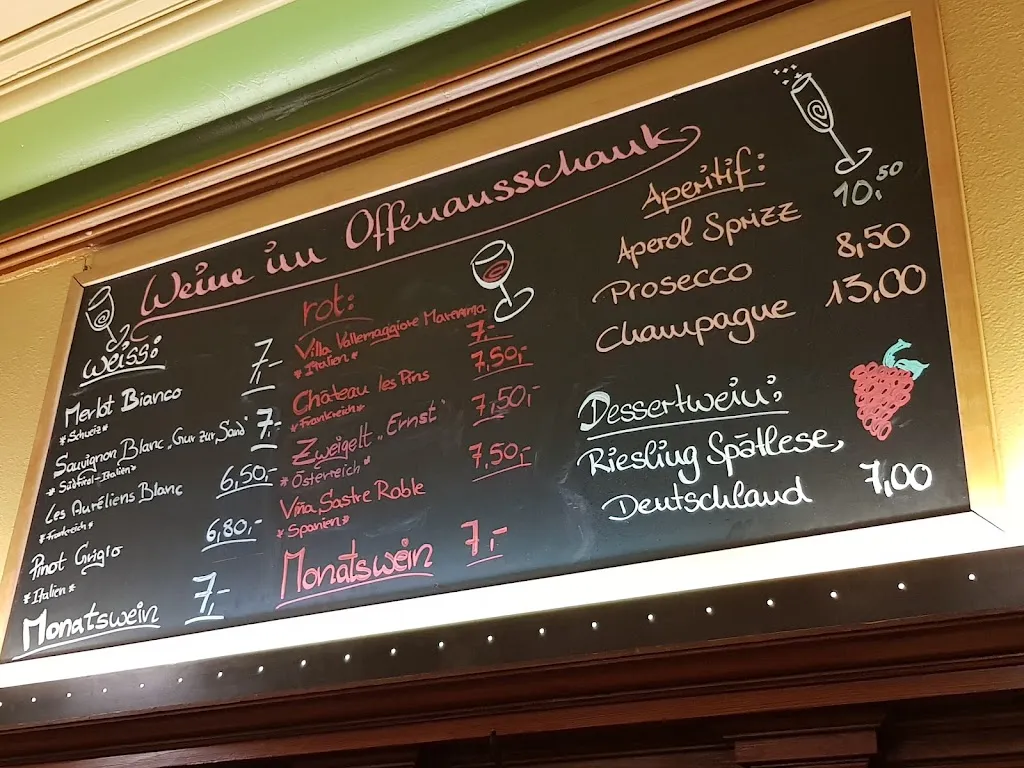 Weine im Offenausschank
weiss:
Merlot Bianco 7,-
*Schweiz*
Sauvignon Blanc "Gur zur Sand" 7,-
*Südtirol-Italien*
Les Auréliens Blanc 6,50,-
*Frankreich*
Pinot Grigio 6,80,-
*Italien*
Monatswein 7,-
rot:
Villa Vallemaggiore Maremma 7,-
*Italien*
Chateau les Pins 7,50,-
*Frankreich*
Zweigelt "Ernst" 7,50,-
*Österreich*
Viña Sastre Roble 7,50,-
*Spanien*
Monatswein 7,-
Aperitif:
Aperol Sprizz 10,50
Prosecco 8,50
Champagne 13,00
Dessertwein:
Riesling Spätlese,
Deutschland 7,00